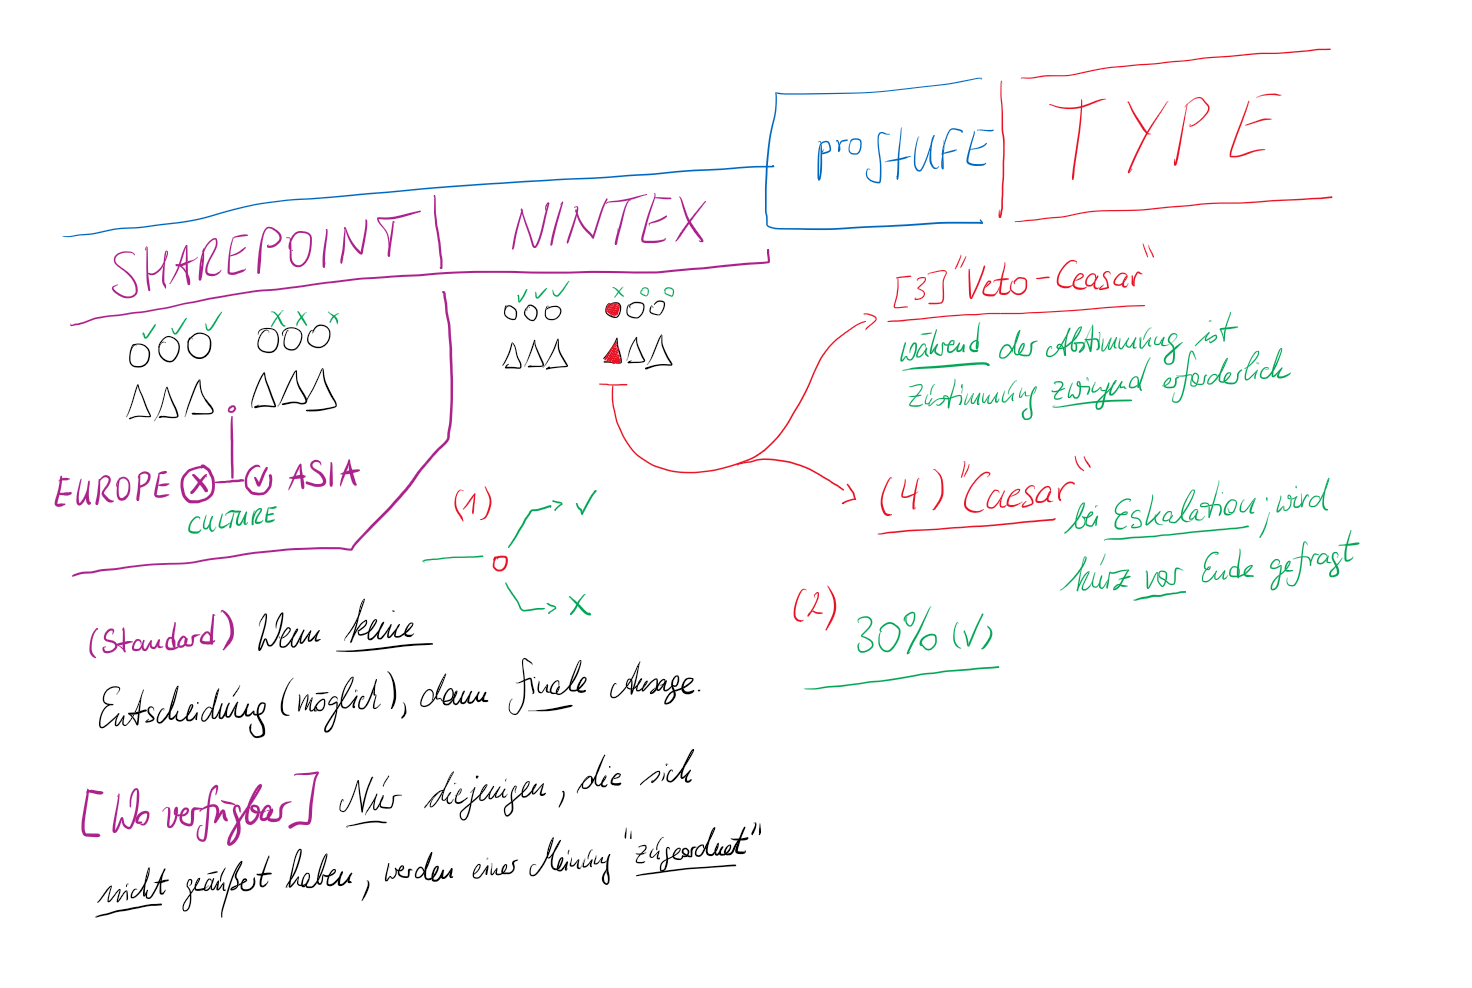 pro STUFE
TYPE
SHAREPOINT
NINTEX
[3] "Veto-Ceasar"
während der Abstimmung ist
Zustimmung zwingend erforderlich
EUROPE X ✓ ASIA
CULTURE
(1)
✓
X
(4) "Caesar"
bei Eskalation; wird
kurz vor Ende gefragt
(2)
30% (✓)
(Standard) Wenn keine
Entscheidung (möglich), dann finale Ausage.
[Wo verfügbar] Nur diejenigen, die sich
nicht geäußert haben, werden einer Meinung "zugeordnet"